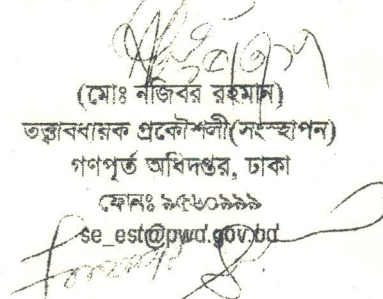 (মোঃ নজিবর রহমান)
তত্ত্বাবধায়ক প্রকৌশলী(সংস্থাপন)
গণপূর্ত অধিদপ্তর, ঢাকা
ফোনঃ ৯৫৬০৯৯৯
se_est@pwd.gov.bd